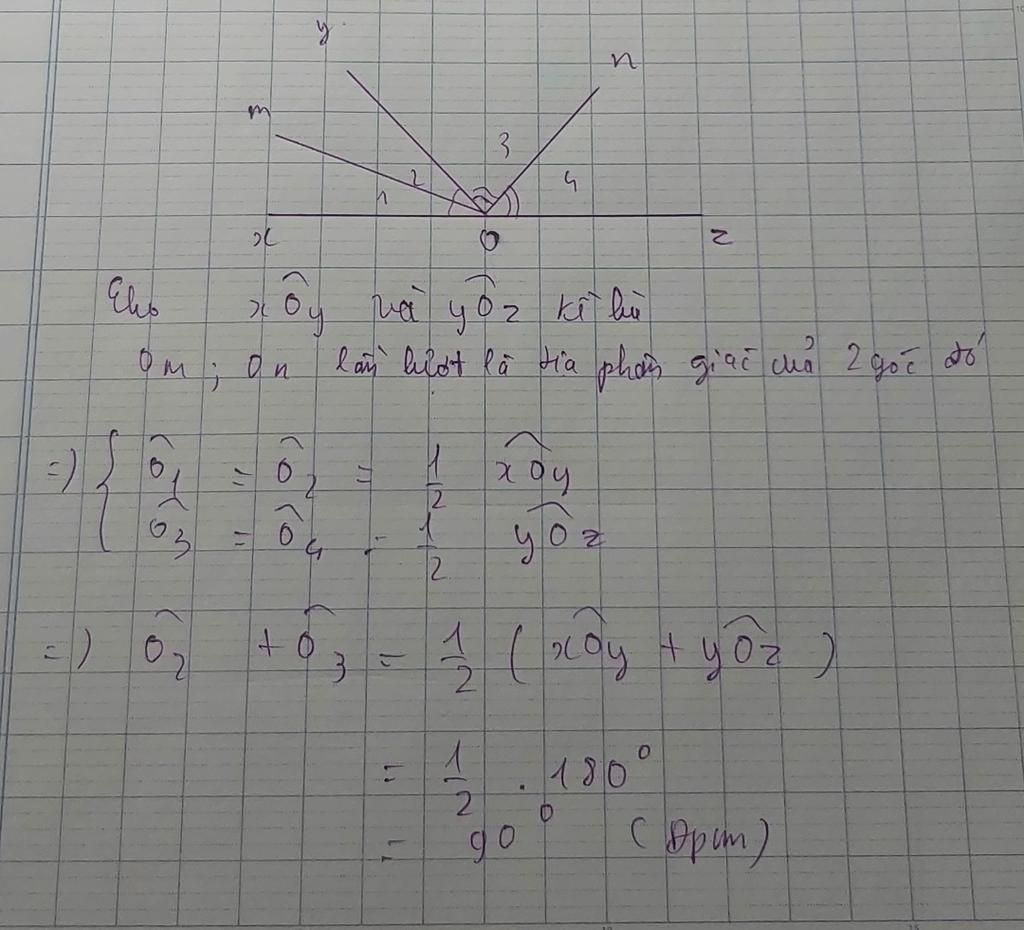 y
n
m
3
2
4
1
x
O
z
Cho xÔy và yÔz kề bù
Om ; On lần lượt là tia phân giác của 2 góc đó
=) { Ô1 = Ô2 = 1/2 xÔy
Ô3 = Ô4 = 1/2 yÔz
=) Ô2 + Ô3 = 1/2 ( xÔy + yÔz )
= 1/2 . 180°
= 90° (Đpcm)